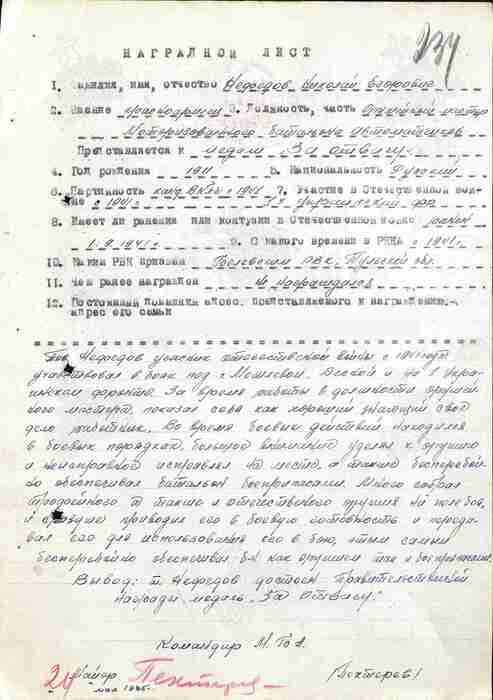 234
НАГРАДНОЙ ЛИСТ
1. Фамилия, имя, отчество Нефедов Николай Егорович
2. Звание красноармеец 3. Должность, часть Оружейный мастер
Моторизованного батальона автоматчиков
Представляется к медали "За отвагу"
4. Год рождения 1911 5. Национальность Русский
6. Партийность канд. ВКП(б) с 1941 7. Участие в Отечественной вой-
не с 1941 г. 1й Украинский фр.
8. Имеет ли ранения или контузии в Отечественной войне ранен
1.9.1941 г. 9. С какого времени в РККА с 1941 г.
10. Каким РВК призван Белевским РВК, Тульской обл.
11. Чем ранее награжден не награждался
12. Постоянный домашний адрес представляемого к награждению,
адрес его семьи
Тов. Нефедов участник отечественной войны с 1941 г.
участвовал в боях под и на 1 Укра-
инском фронте. За время работы в должности оружей-
ного мастера, показал себя как хороший знающий своё
дело работник. Во время боевых действий находился
в боевых порядках, большое внимание уделял к оружию
и неисправное исправлял на месте, а также бесперебой-
но обеспечивал батальон боеприпасами. Много собрал
трофейного а также и отечественного оружия на поле боя,
и сразу приводил его в боевую готовность и переда-
вал его для использования его в бою, этим самым
бесперебойно обеспечивал б-н как оружием так и боеприпасами.
Вывод: т. Нефедов достоен Правительственной
награды, медаль "За Отвагу".
Командир М.Б.А.
Майор
24 мая 1945 г. /Пехтерев/